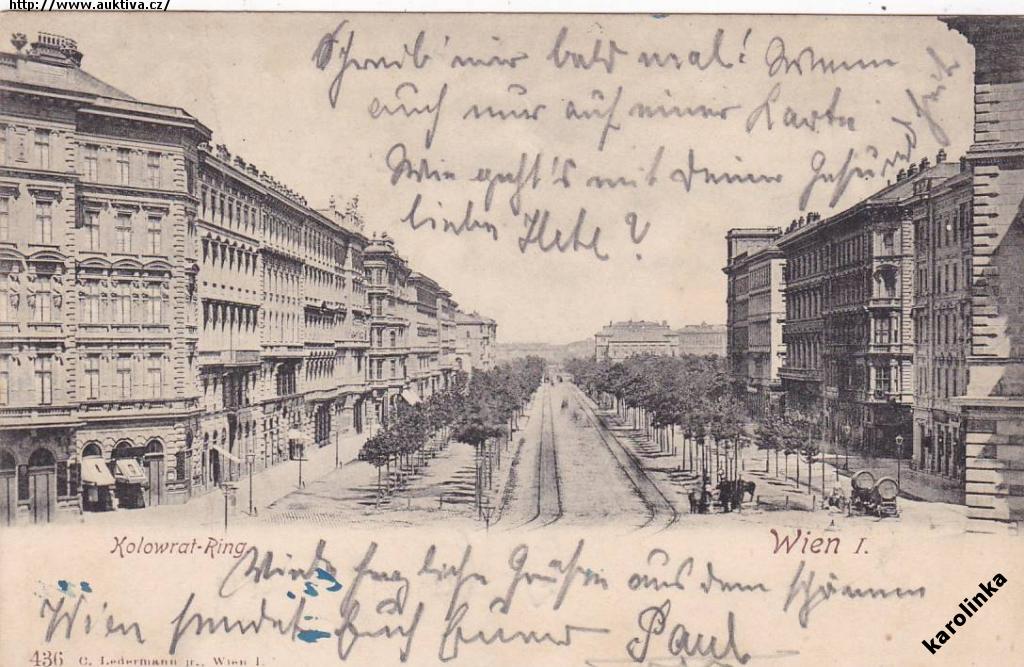 http://www.auktiva.cz/
Schreib' mir bald mal! Wenn
auch nur auf einer Karte
Wie geht's mit Deiner Gesundheit
lieben
Kolowrat-Ring.
Wien I.
Viele herzliche Grüße aus dem schönen
Wien sendet Euch Euer Paul
436 C. Ledermann jr., Wien I.
karolinka